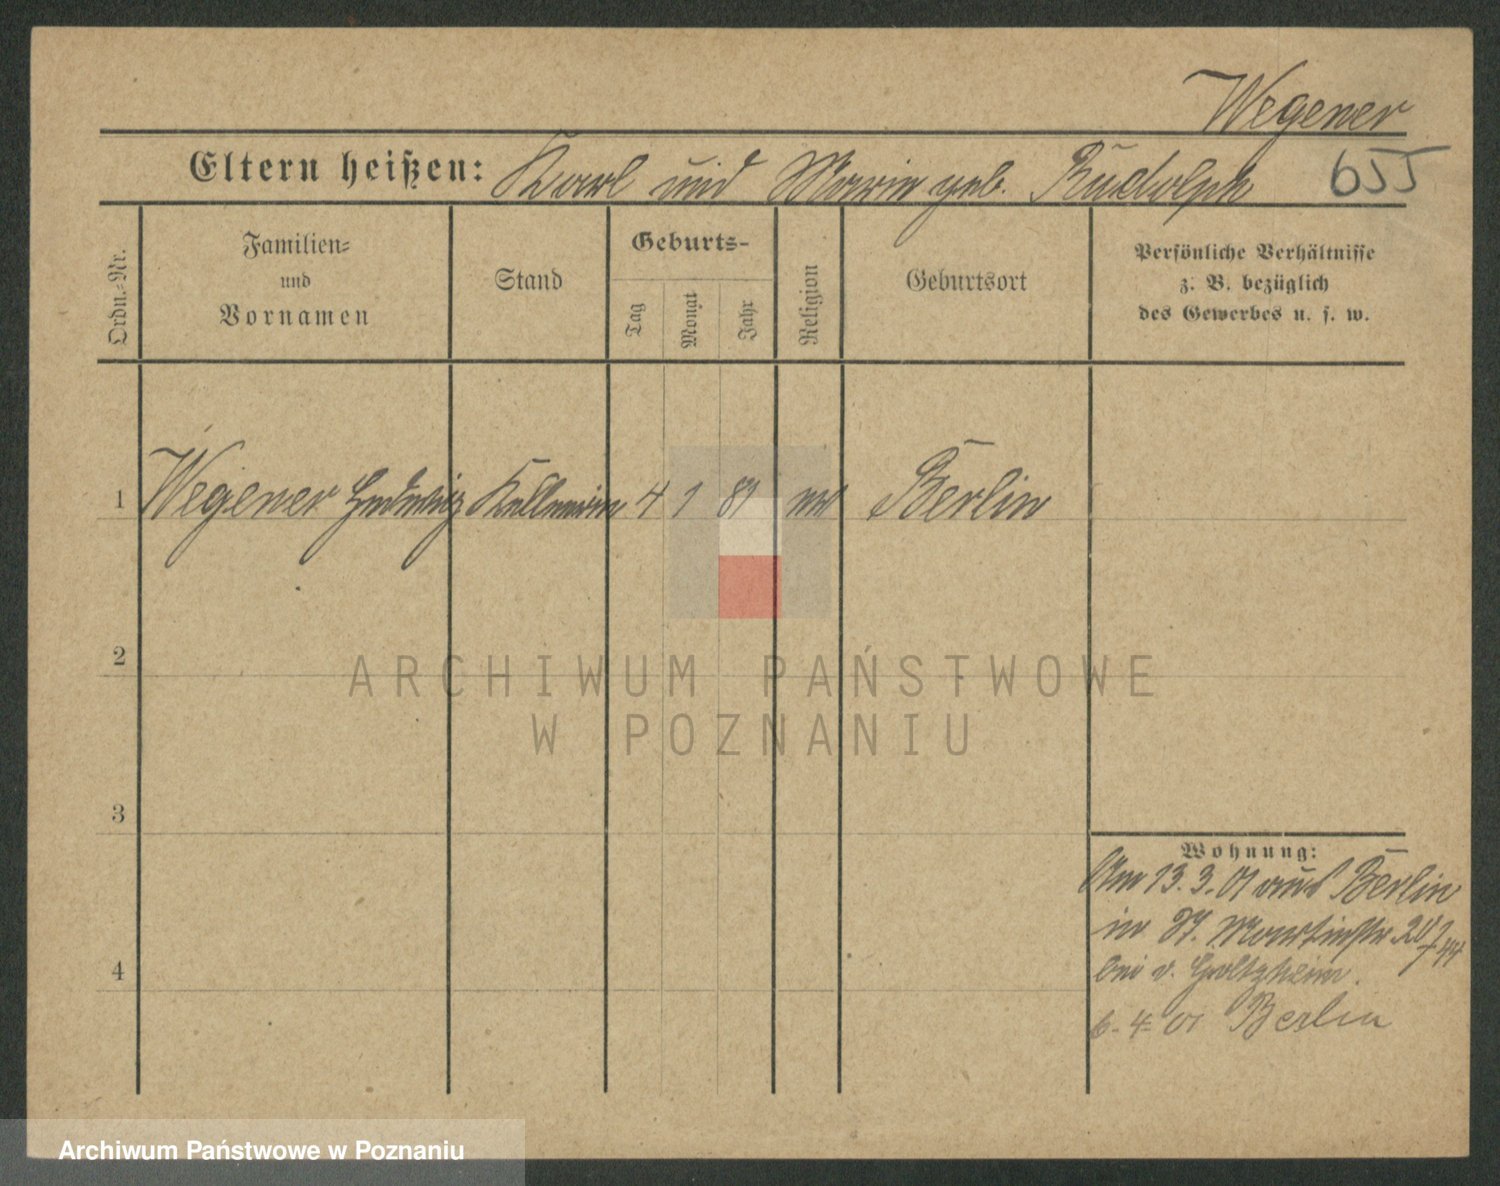 Wegener
Eltern heißen: Karl und Marie geb. Rudolph 655
Ordn.-Nr.
Familien-
und
Vornamen
Stand
Geburts-
Tag
Monat
Jahr
Religion
Geburtsort
Persönliche Verhältnisse
z. B. bezüglich
des Gewerbes u. s. w.
1 Wegener Hedwig Kellnerin 4 1 81 Berlin
2
ARCHIWUM PAŃSTWOWE
W POZNANIU
3
Wohnung:
Am 13.3.01 aus Berlin
in St. Martinstr.
4
bei v.
6.4.01 Berlin
Archiwum Państwowe w Poznaniu